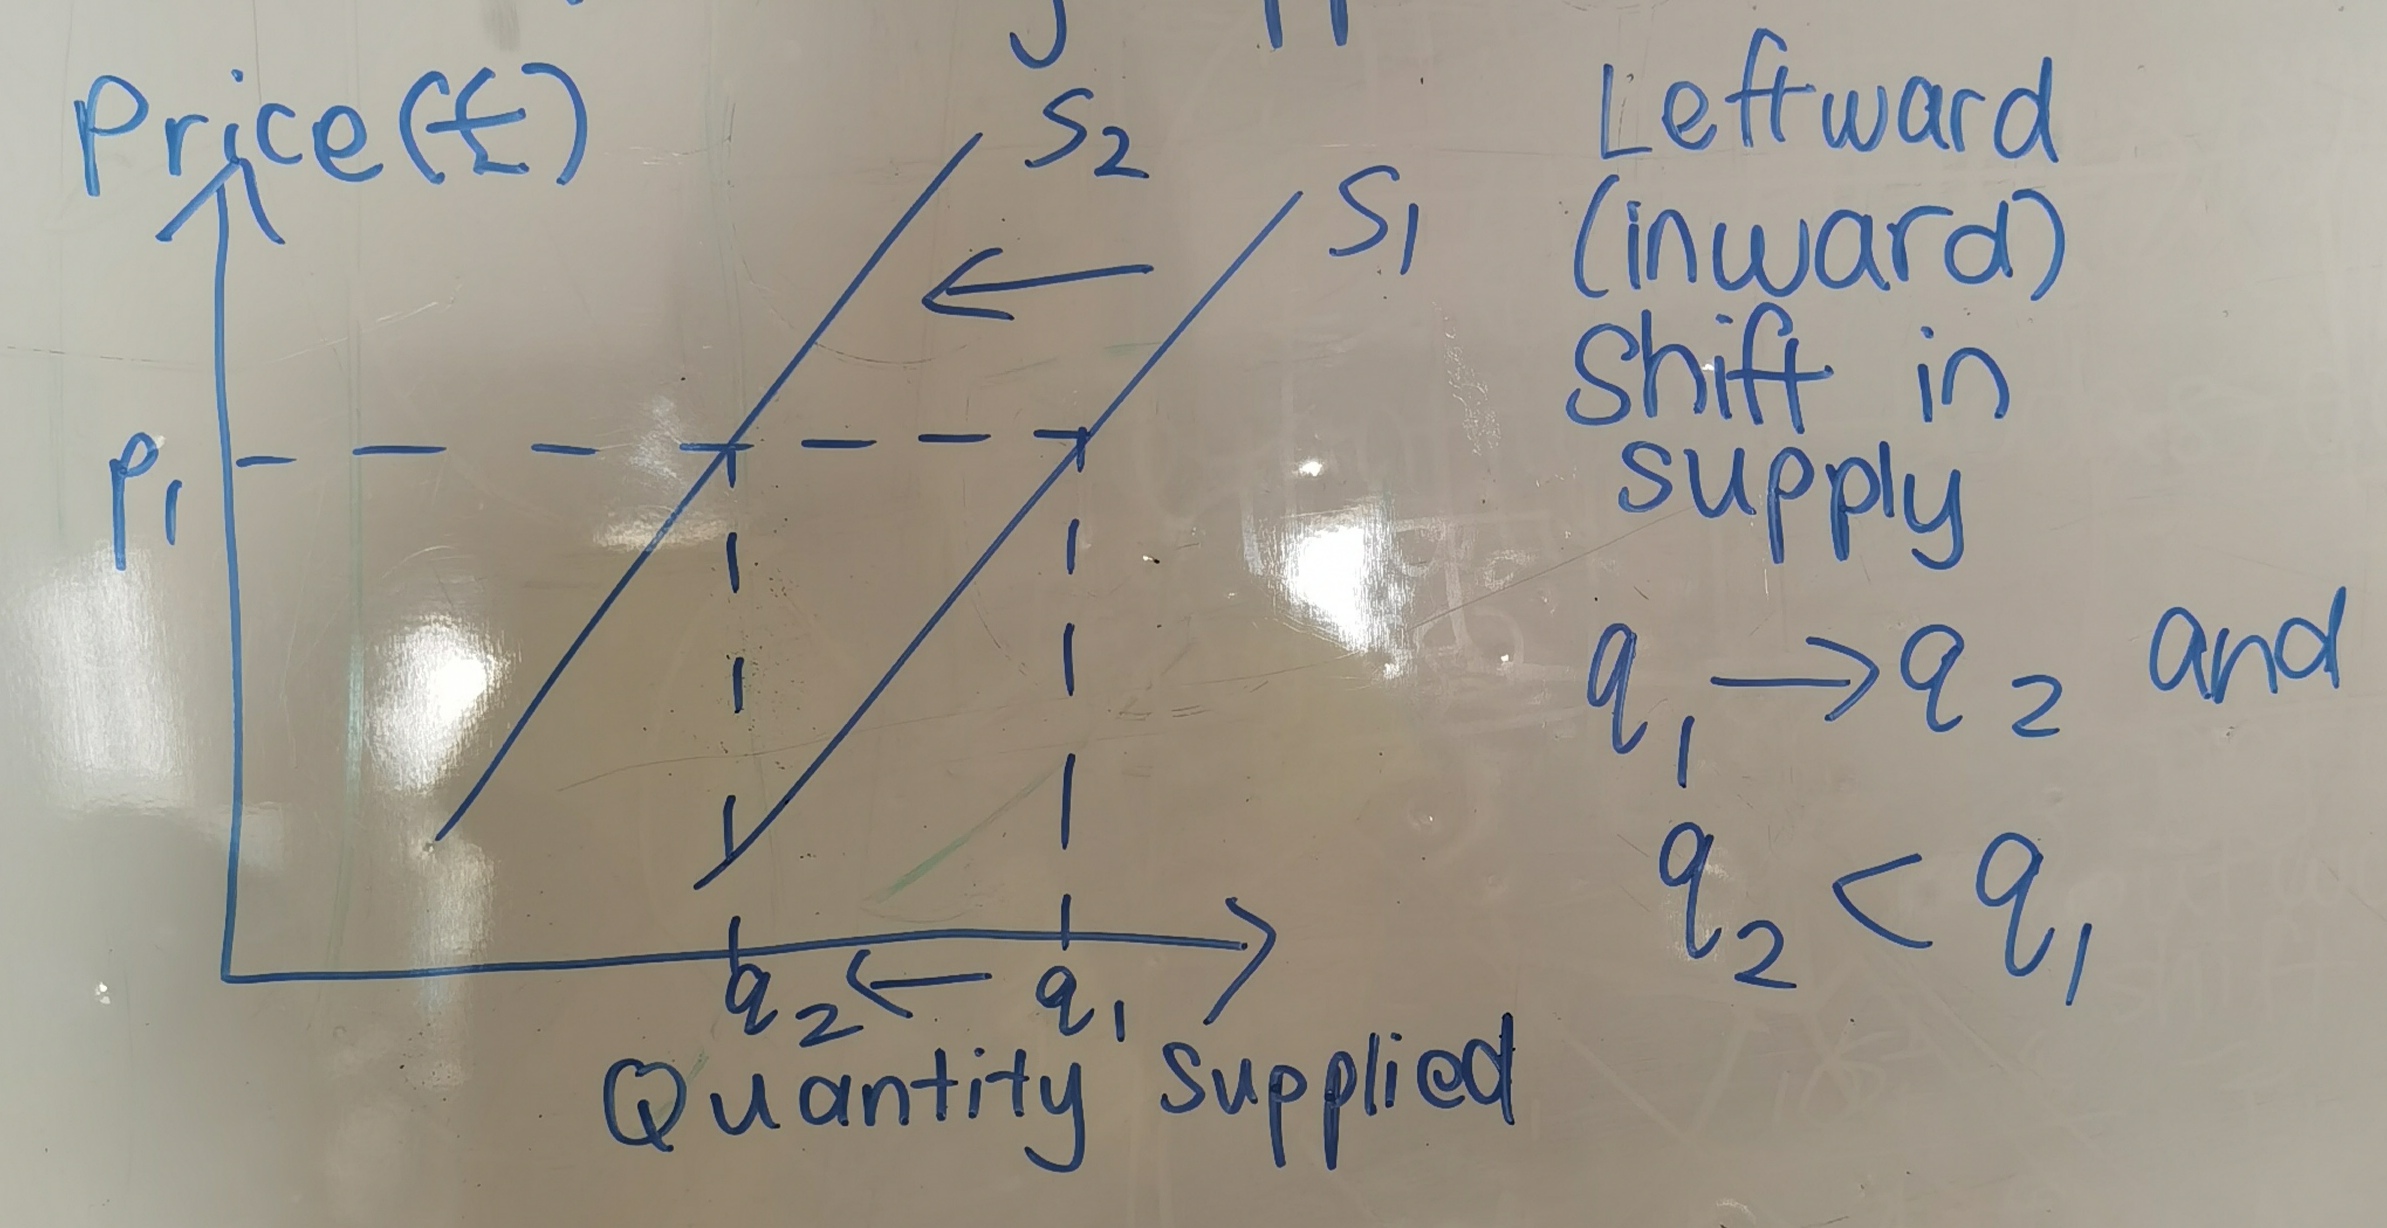 Price (£)
S2
S1
P1
q2 ← q1
Quantity supplied
Leftward
(inward)
Shift in
supply
q1 → q2 and
q2 < q1